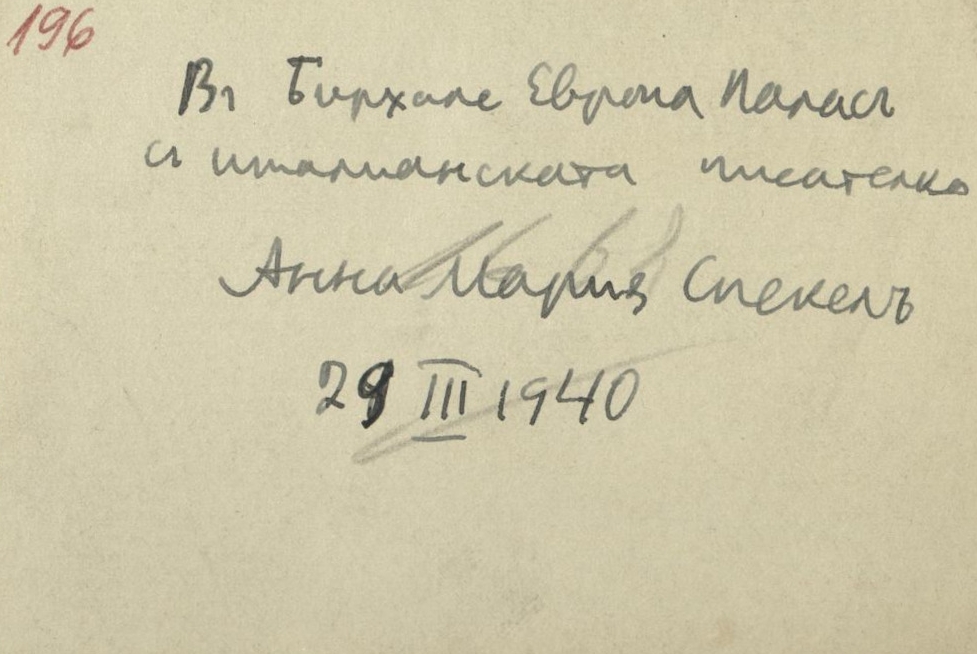 196
Въ Бирхале Европа Паласъ
съ италианската писателка
Анна Мария Спекелъ
29 III 1940